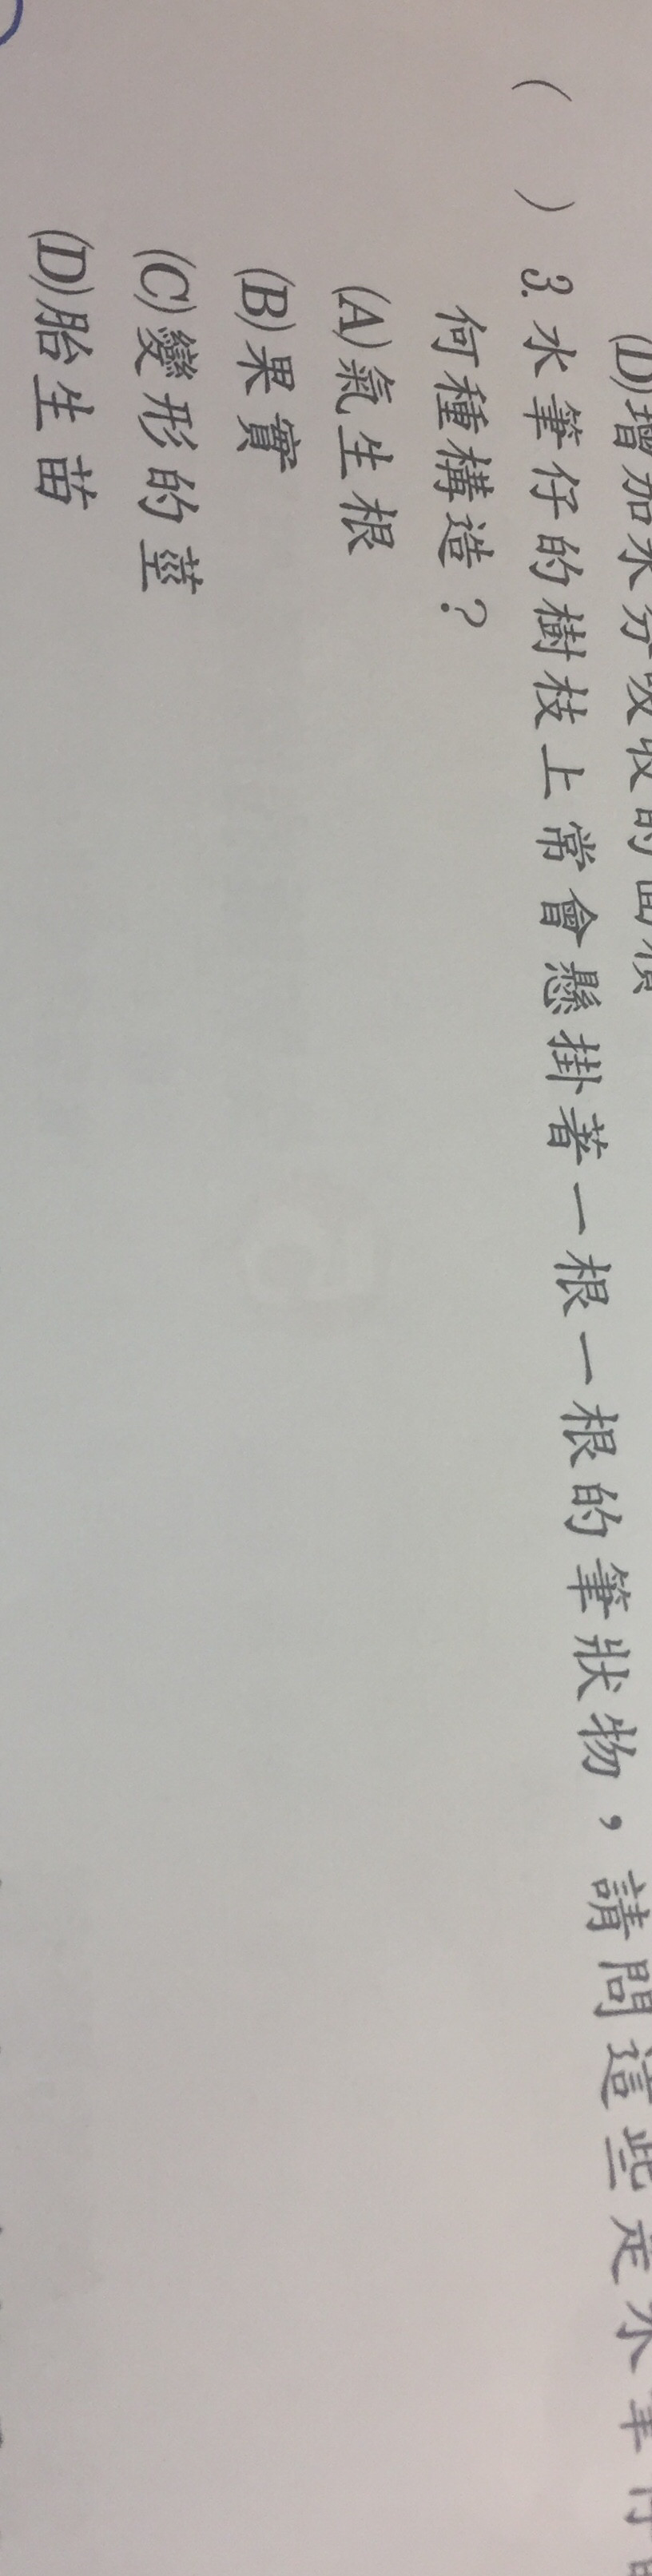 (D)增加水分吸收的面積
( ) 3. 水筆仔的樹枝上常會懸掛著一根一根的筆狀物，請問這些是水筆仔的
何種構造？
(A)氣生根
(B)果實
(C)變形的莖
(D)胎生苗